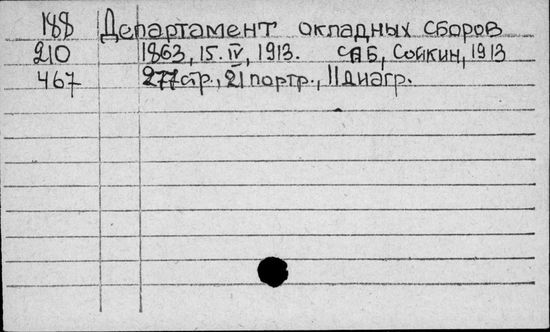 188 Департамент окладных сборов
210 1863, 15. IV, 1913. СПБ, Сойкин, 1913
467 277 стр., 21 портр., 11 диагр.